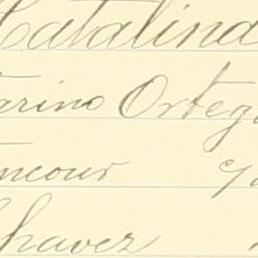 Catalina
arino Ortega
ncour
Chavez